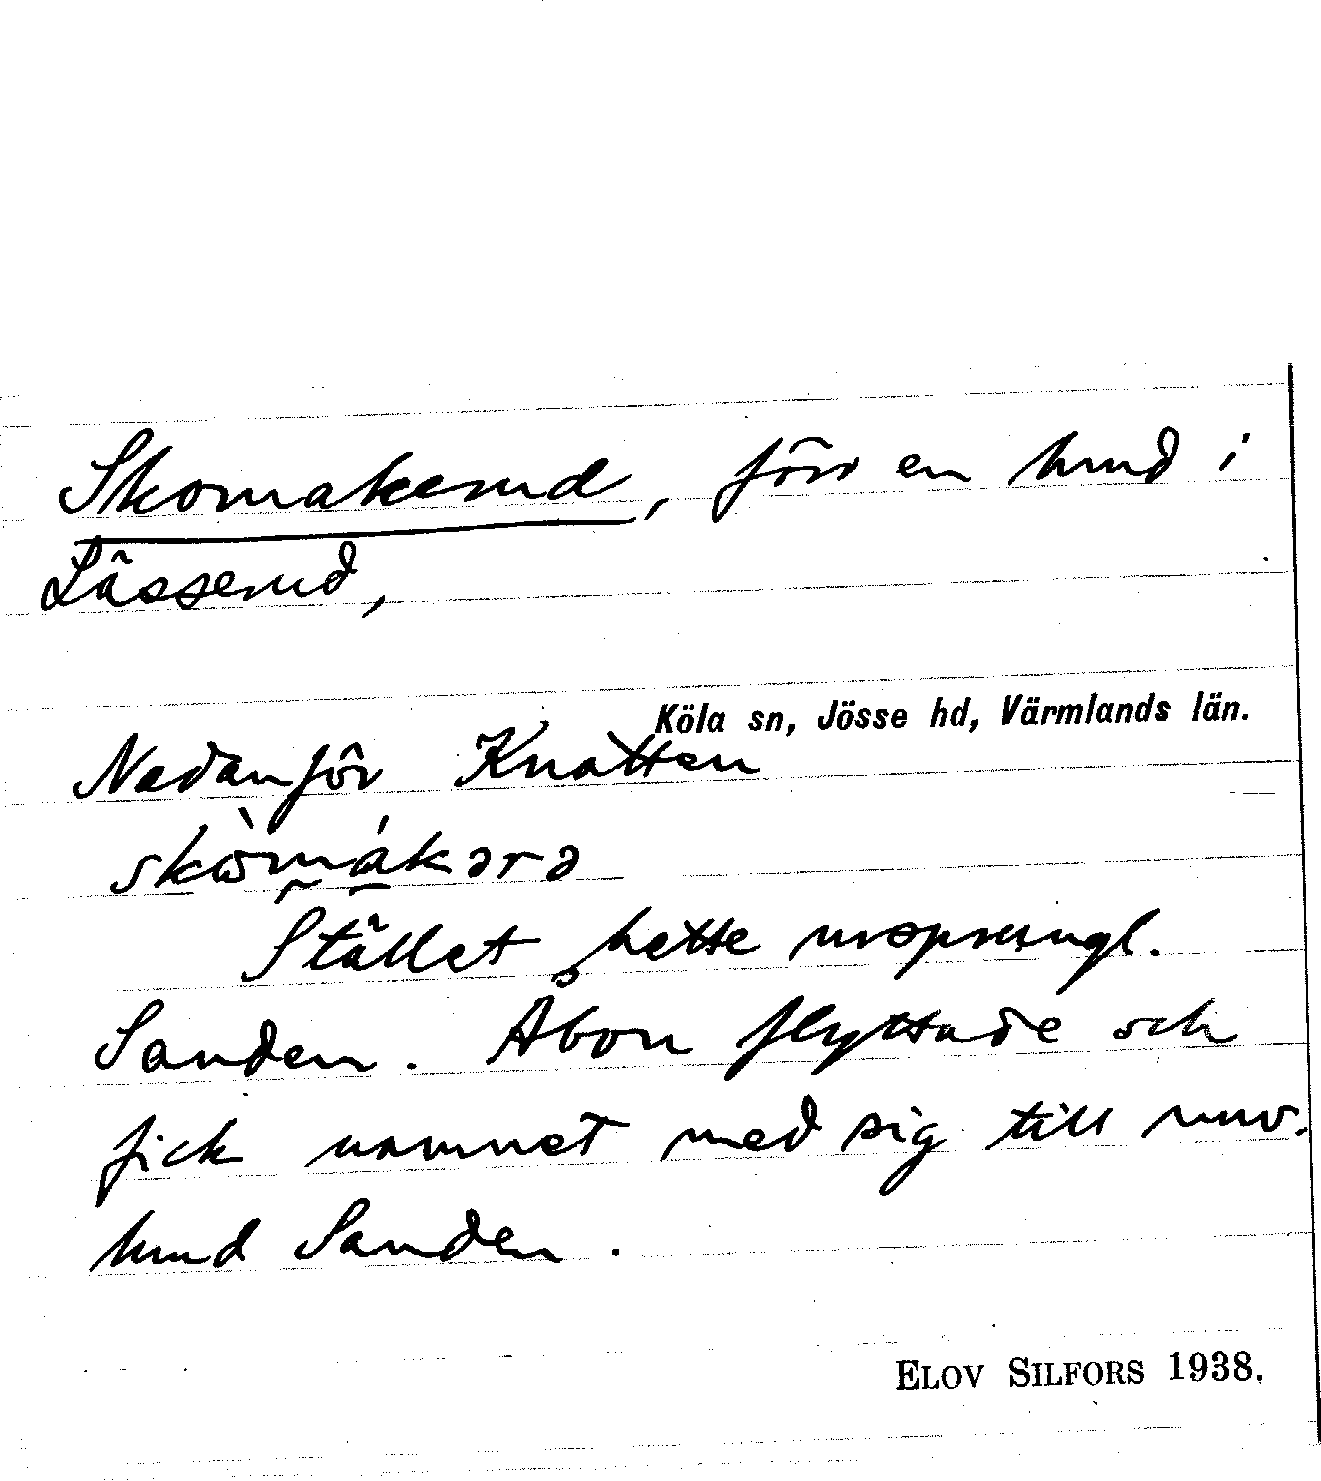 Skomakerud, förr en hmd i
Lässerud,
Köla sn, Jösse hd, Värmlands län.
Nedanför Knatten
skòmákərə
Stället hette ursprungl.
Sanden. Åbon flyttade och
fick namnet med sig till nuv.
hmd Sanden.
ELOV SILFORS 1938.